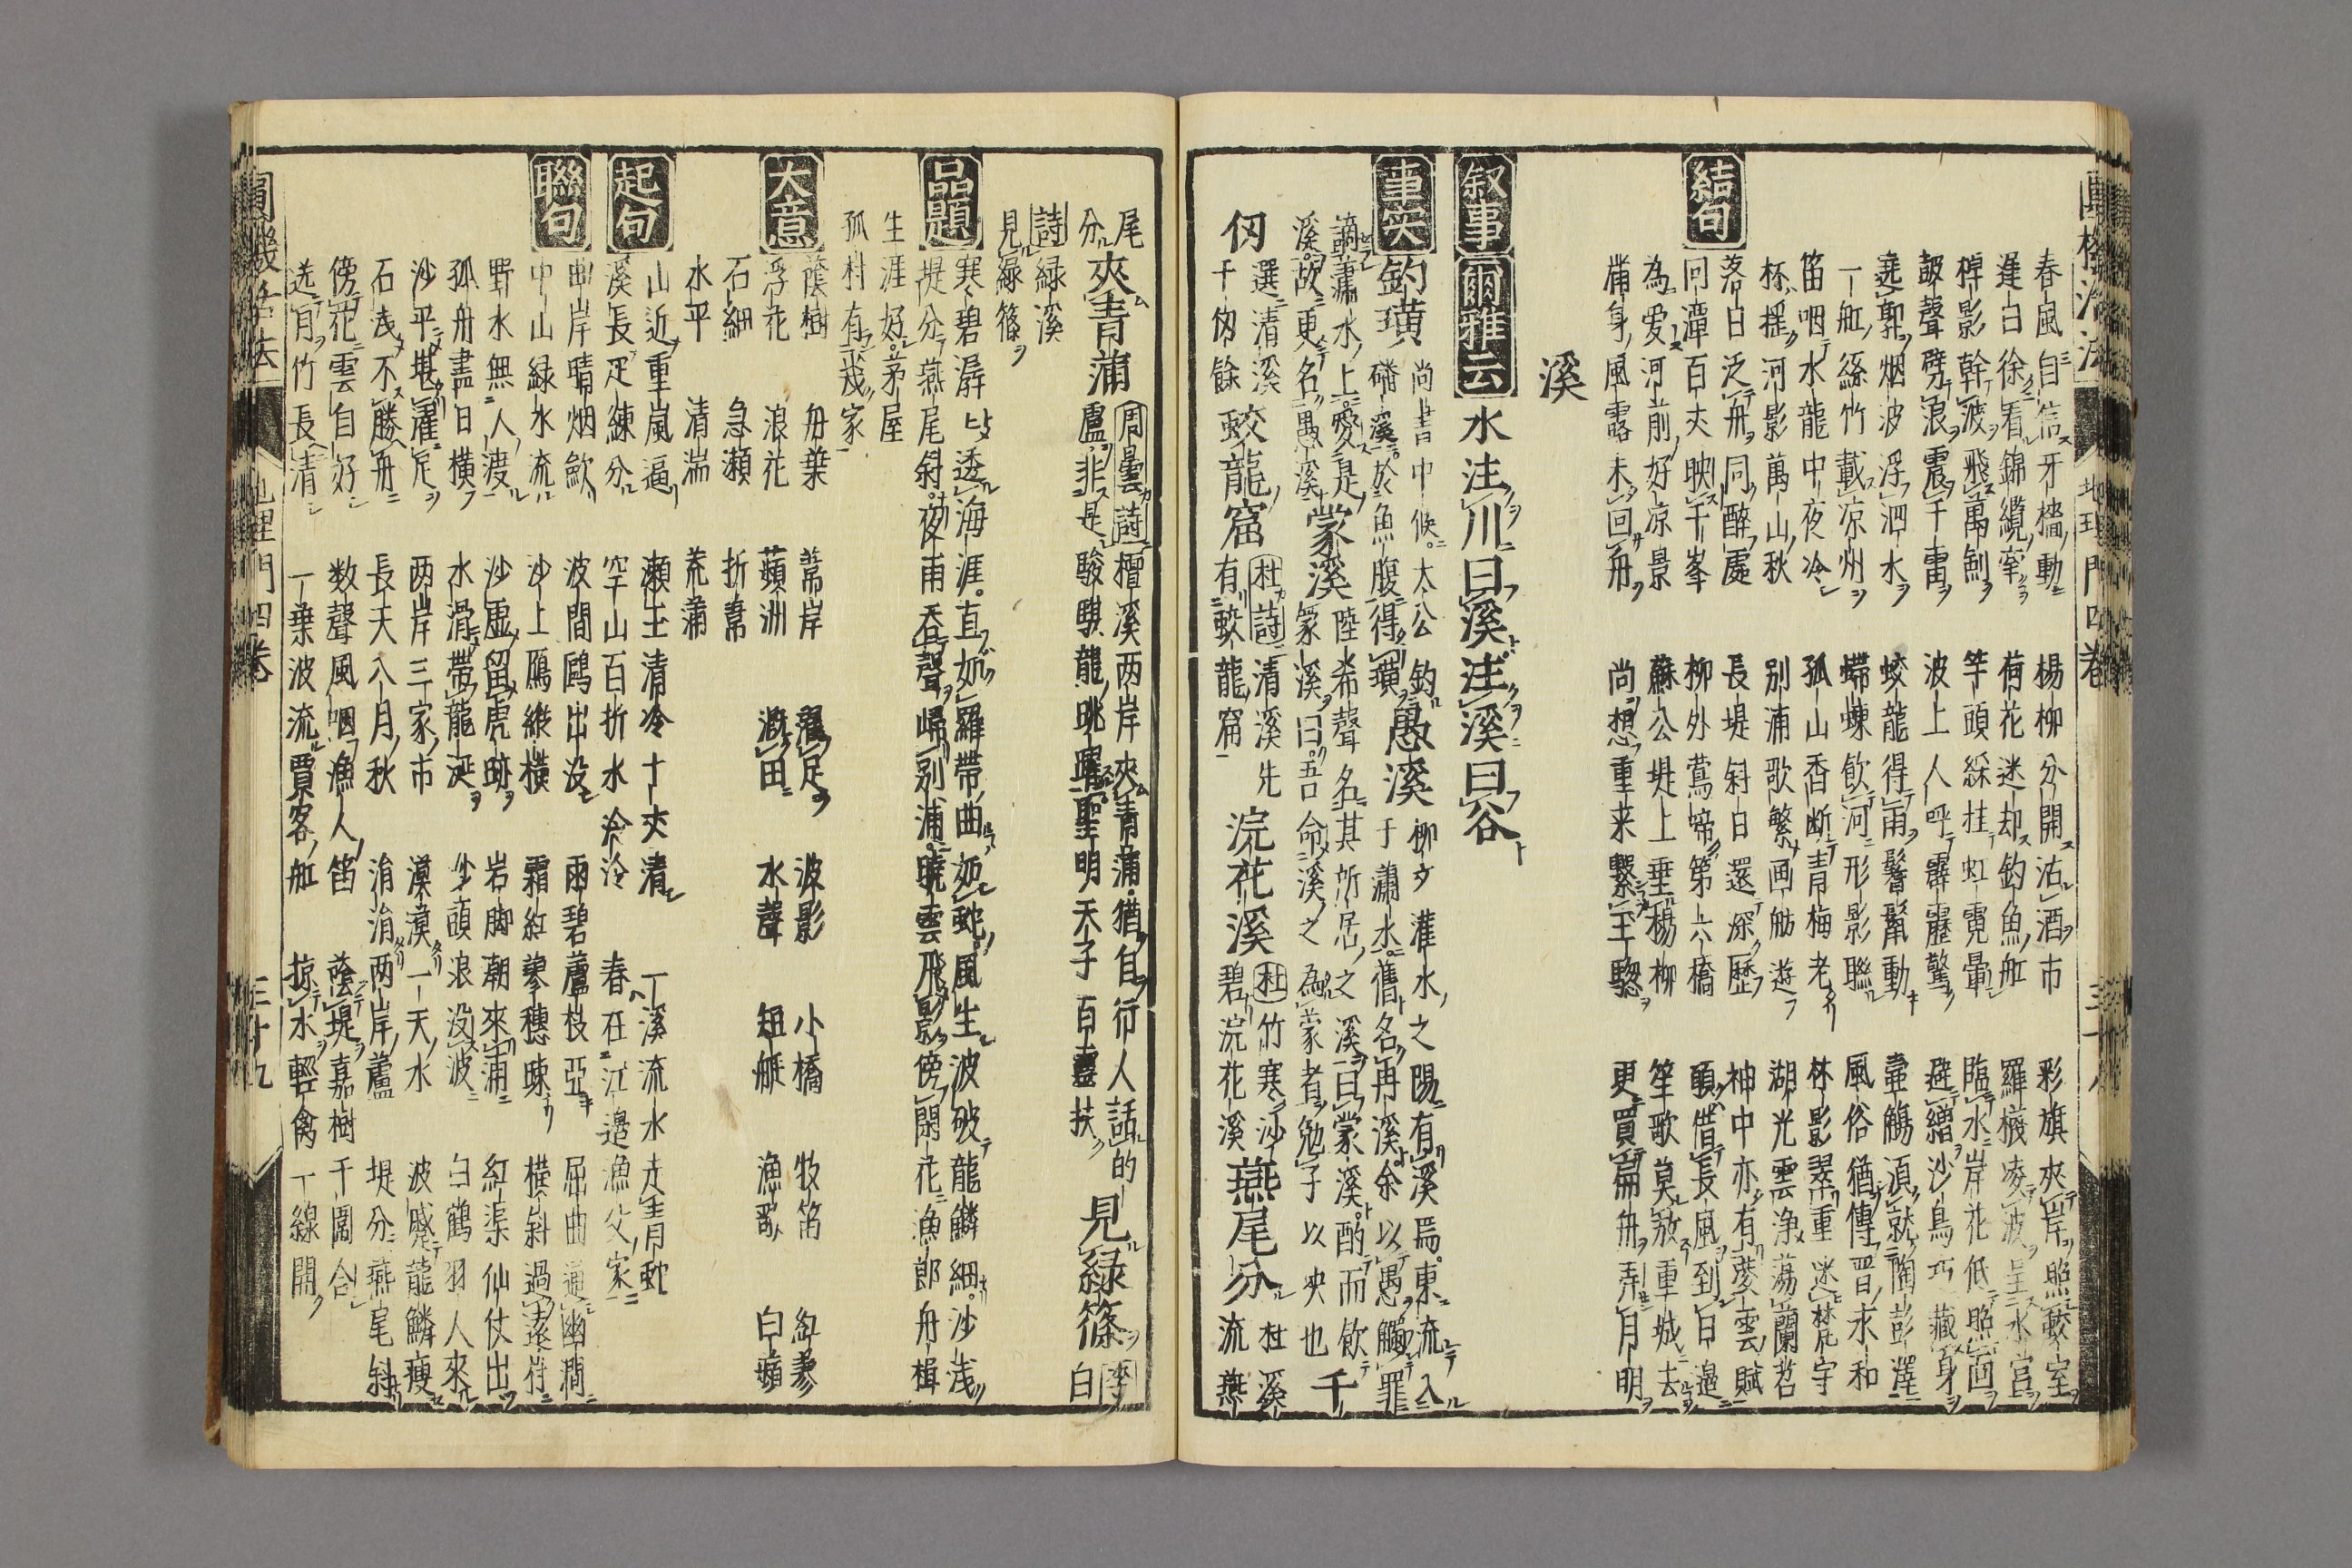 春風自信牙檣動　楊柳分開沽酒市　彩旗夾岸照蛟室
遲日徐看錦纜牽　荷花迷却釣魚舡　羅襪凌波呈水宮
棹影斡波飛萬劍　竿頭綵挂虹霓暈　臨水岸花低照回
皷聲劈浪震千雷　波上人呼霹靂驚　避繒沙鳥巧藏身
遶郭烟波浮泗水　蛟龍得雨鬐鬣動　壷觴須就陶彭澤
一舡絲竹載凉州　螮蝀飲河形影聯　風俗猶傳晋永和
笛咽水龍中夜冷　孤山香断青梅老　林影翠重迷梵宇
杯揺河影萬山秋　別浦歌繁画舫遊　湖光雲浄蕩蘭苕
落日泛舟同醉處　長堤斜日還深歴　神中亦有凌雲賦
结句
回潭百丈映千峯　柳外鴬啼第六橋　願借長風到日邉
為愛河前好凉景　蘇公堤上垂楊柳　笙歌莫放重城去
滿身風露未回舟　尚想重来繋玉驄　更買扁舟弄月明
溪
叙事 爾雅云 水注川曰溪注溪曰谷
事実 釣璜 尚書中候太公釣
磻溪於魚腹得璜 愚溪 柳文灌水之陽有溪焉東流入
于瀟水舊名冉溪余以愚觸罪
謫瀟水上愛是
溪故更名愚溪 蒙溪 陸希聲名其所居之溪曰蒙溪酌而飲
篆溪曰吾命溪之為蒙者勉子以夬也 千
仭 選清溪
千仭餘 蛟龍窟 杜詩清溪先
有蛟龍窟 浣花溪 杜竹寒沙
碧浣花溪 燕尾分 杜溪
流燕
尾
分 夾青蒲 周曇詩檀溪两岸夾青蒲猶自行人話的
盧非是駿騏龍眺嘱聖明天子百靈扶 見緑篠 李
白
詩緑溪
見緑篠
品題 寒碧潺〻透海涯直如羅帶曲如虵風生波破龍鱗細沙浅
堤分燕尾斜夜雨呑聲帰別浦曉雲飛影傍閑花漁郎舟楫
生涯好茅屋
孤村有幾家
大意 蔭樹　舟葉　蒂岸　濯足　波影　小橋　牧笛　紅蓼
浮花　浪花　蘋洲　漑田　水聲　短艇　漁歌　白蘋
石細　急瀬　折葦
水平　清湍　荒蒲
起句 山近重嵐逼　瀬玉清冷十丈清　一溪流水走青虵
溪長疋練分　空山百折水冷冷　春在江邉漁父家
聯句 曲岸晴烟歛　波間鷗出没　雨碧蘆枝亞　屈曲通幽澗
中山緑水流　沙上鴈縱横　霜紅蓼穗疎　横斜過遠村
野水無人渡　沙虚留虎跡　岩脚潮來浦　紅渠仙仗出
孤舟盡日横　水滑帯龍涎　沙頭浪没波　白鶴羽人來
沙平堪濯足　两岸三家市　漠漠一天水　波蹙龍鱗瘦
石浅不勝舟　長天八月秋　涓涓两岸蘆　堤分燕尾斜
傍花雲自好　数聲風咽漁人笛　蔭堤嘉樹千園合
迭月竹長清　一葉波流賈客舡　掠水輕禽一線開
地理門四巻　三十八
圓機活法　地理門四巻　三十九